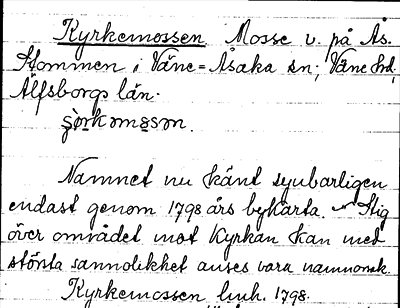 Kyrkemossen Mosse v. på Ås.
Kommen i Väne-Åsaka sn; Väne hd,
Älfsborgs län.
Namnet nu känt synbarligen
endast genom 1798 års bykarta. Stig
över området mot Kyrkan kan med
största sannolikhet antes vara namnorsk.
Kyrkemossen 1798.